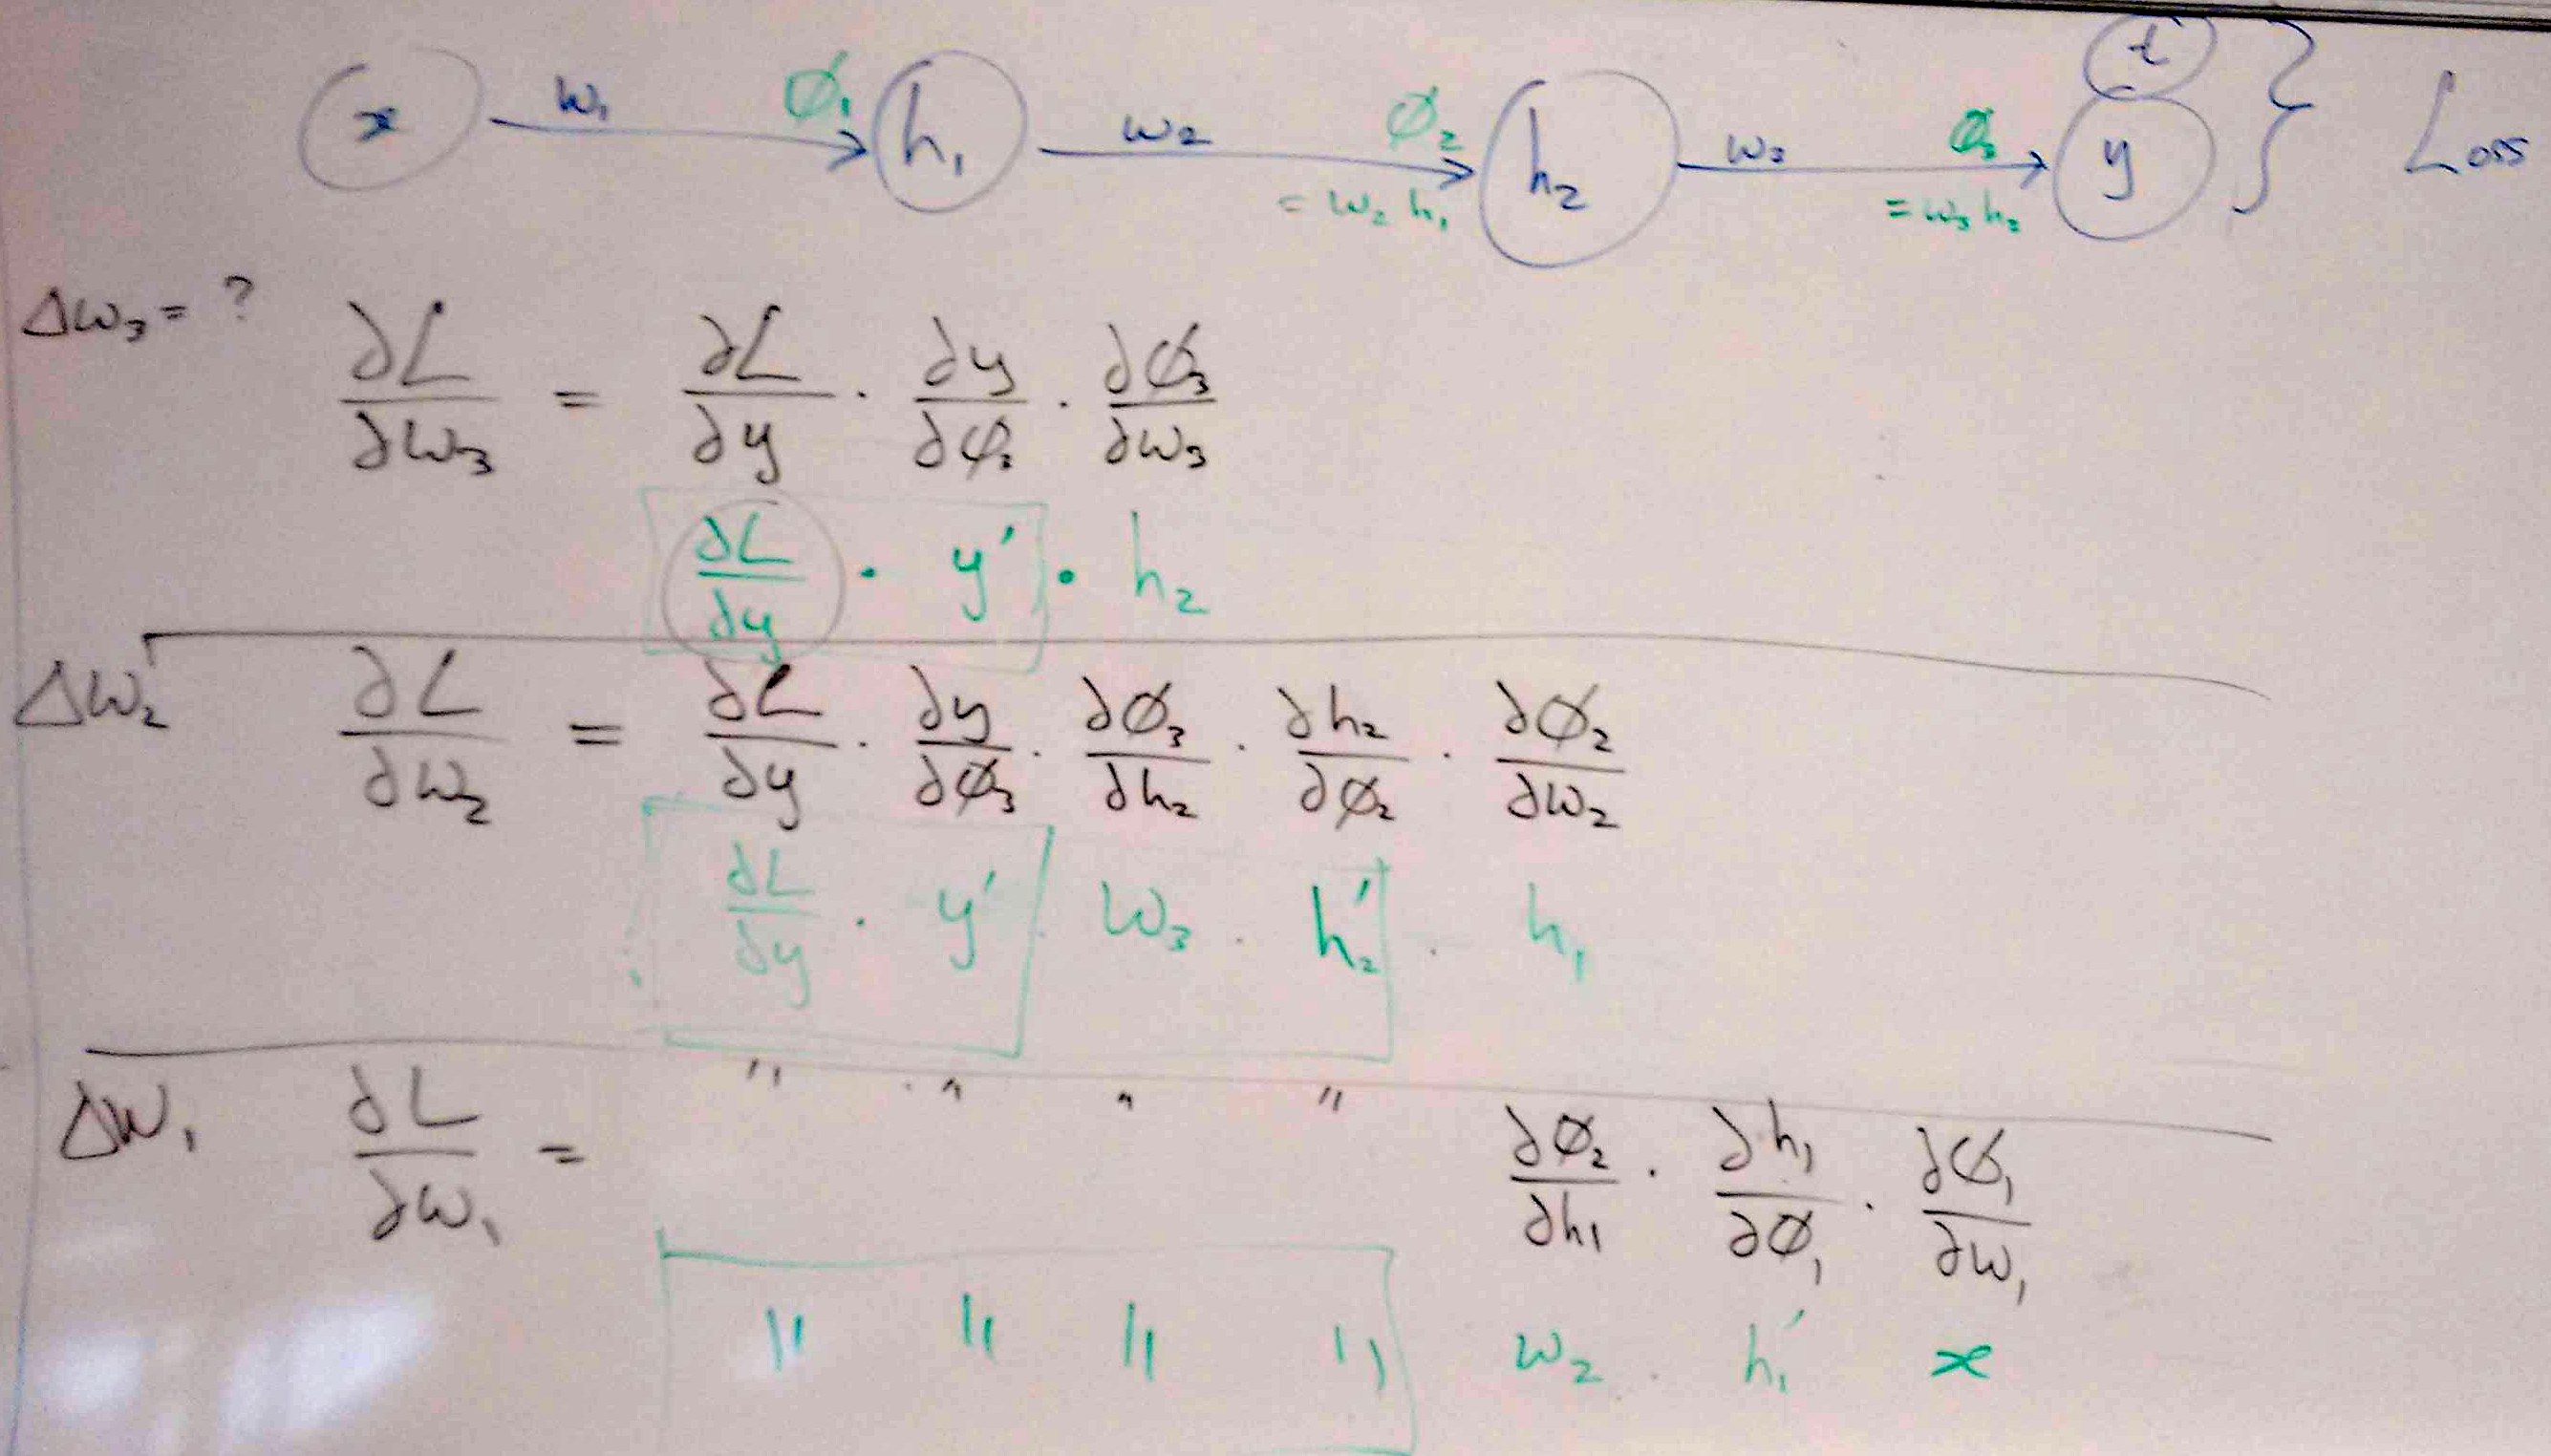 x w₁ ϕ₁ h₁ w₂ ϕ₂ h₂ w₃ ϕ₃ y t } Loss
= w₂ h₁ = w₃ h₂
Δw₃ = ? ∂L/∂w₃ = ∂L/∂y · ∂y/∂ϕ₃ · ∂ϕ₃/∂w₃
∂L/∂y · y′ · h₂
Δw₂ ∂L/∂w₂ = ∂L/∂y · ∂y/∂ϕ₃ · ∂ϕ₃/∂h₂ · ∂h₂/∂ϕ₂ · ∂ϕ₂/∂w₂
∂L/∂y · y′ · w₃ · h₂′ · h₁
Δw₁ ∂L/∂w₁ = " · " " " ∂ϕ₂/∂h₁ · ∂h₁/∂ϕ₁ · ∂ϕ₁/∂w₁
" " " " w₂ · h₁′ x